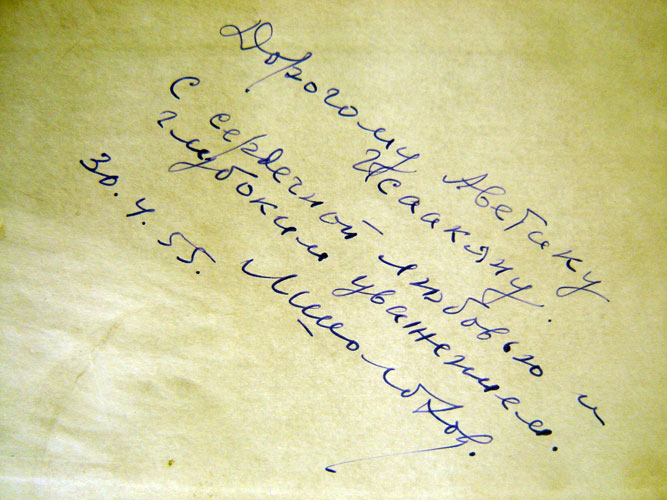 Дорогому Аветику
Исаакяну.
С сердечной любовью и
глубоким уважением.
30.4.55.